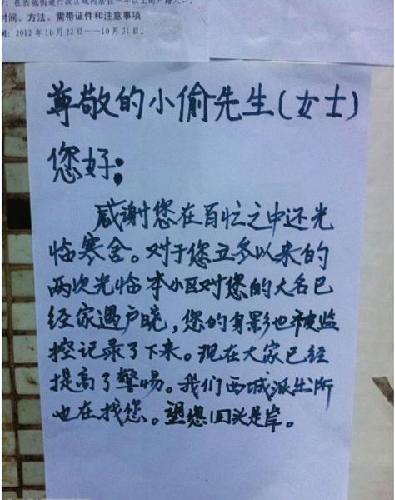 时间、方法、需带证件和注意事项
2012年10月22日——10月31日.
尊敬的小偷先生(女士)
您好:
感谢您在百忙之中还光
临寒舍。对于您立冬以来的
两次光临本小区对您的大名已
经家遇户晓,您的身影也被监
控记录了下来。现在大家已经
提高了警惕。我们西城派出所
也在找您。望您回头是岸。